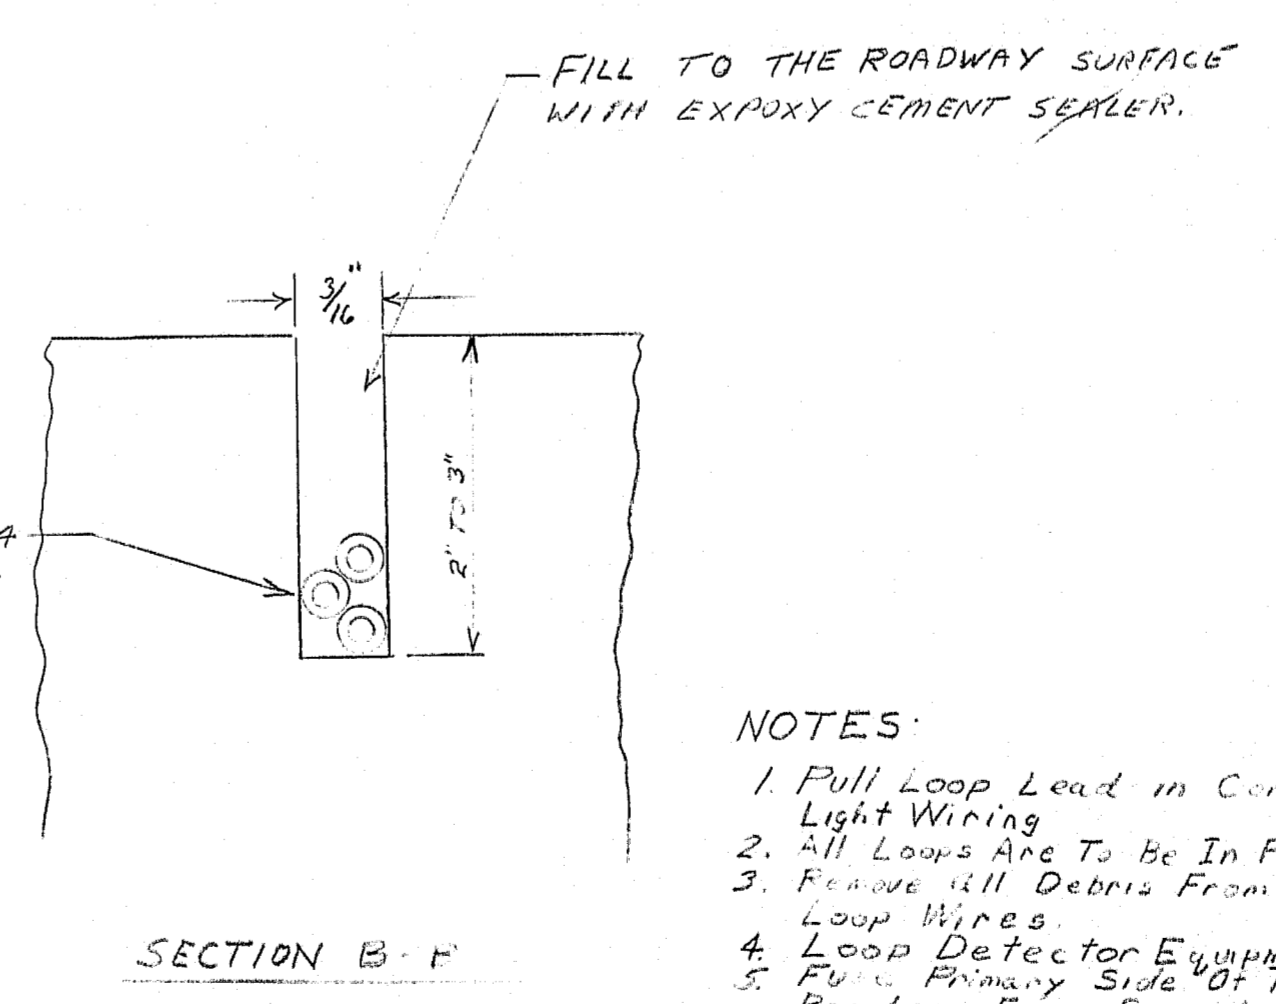 FILL TO THE ROADWAY SURFACE
WITH EXPOXY CEMENT SEALER.
3/16"
2" TO 3"
4
NOTES:
1. Pull Loop Lead in
Light Wiring
2. All Loops Are To Be In
3. Remove All Debris From
Loop Wires.
4. Loop Detector
5. Fuse Primary Side Of
SECTION B-